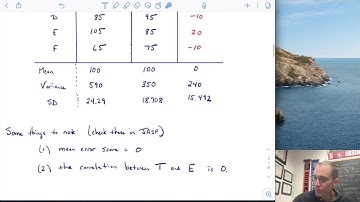 D 85 95 -10
E 105 85 20
F 65 75 -10
Mean 100 100 0
Variance 590 350 240
SD 24.29 18.708 15.492
Some things to note: (check these in JASP)
(1) mean error score = 0
(2) the correlation between T and E is 0.